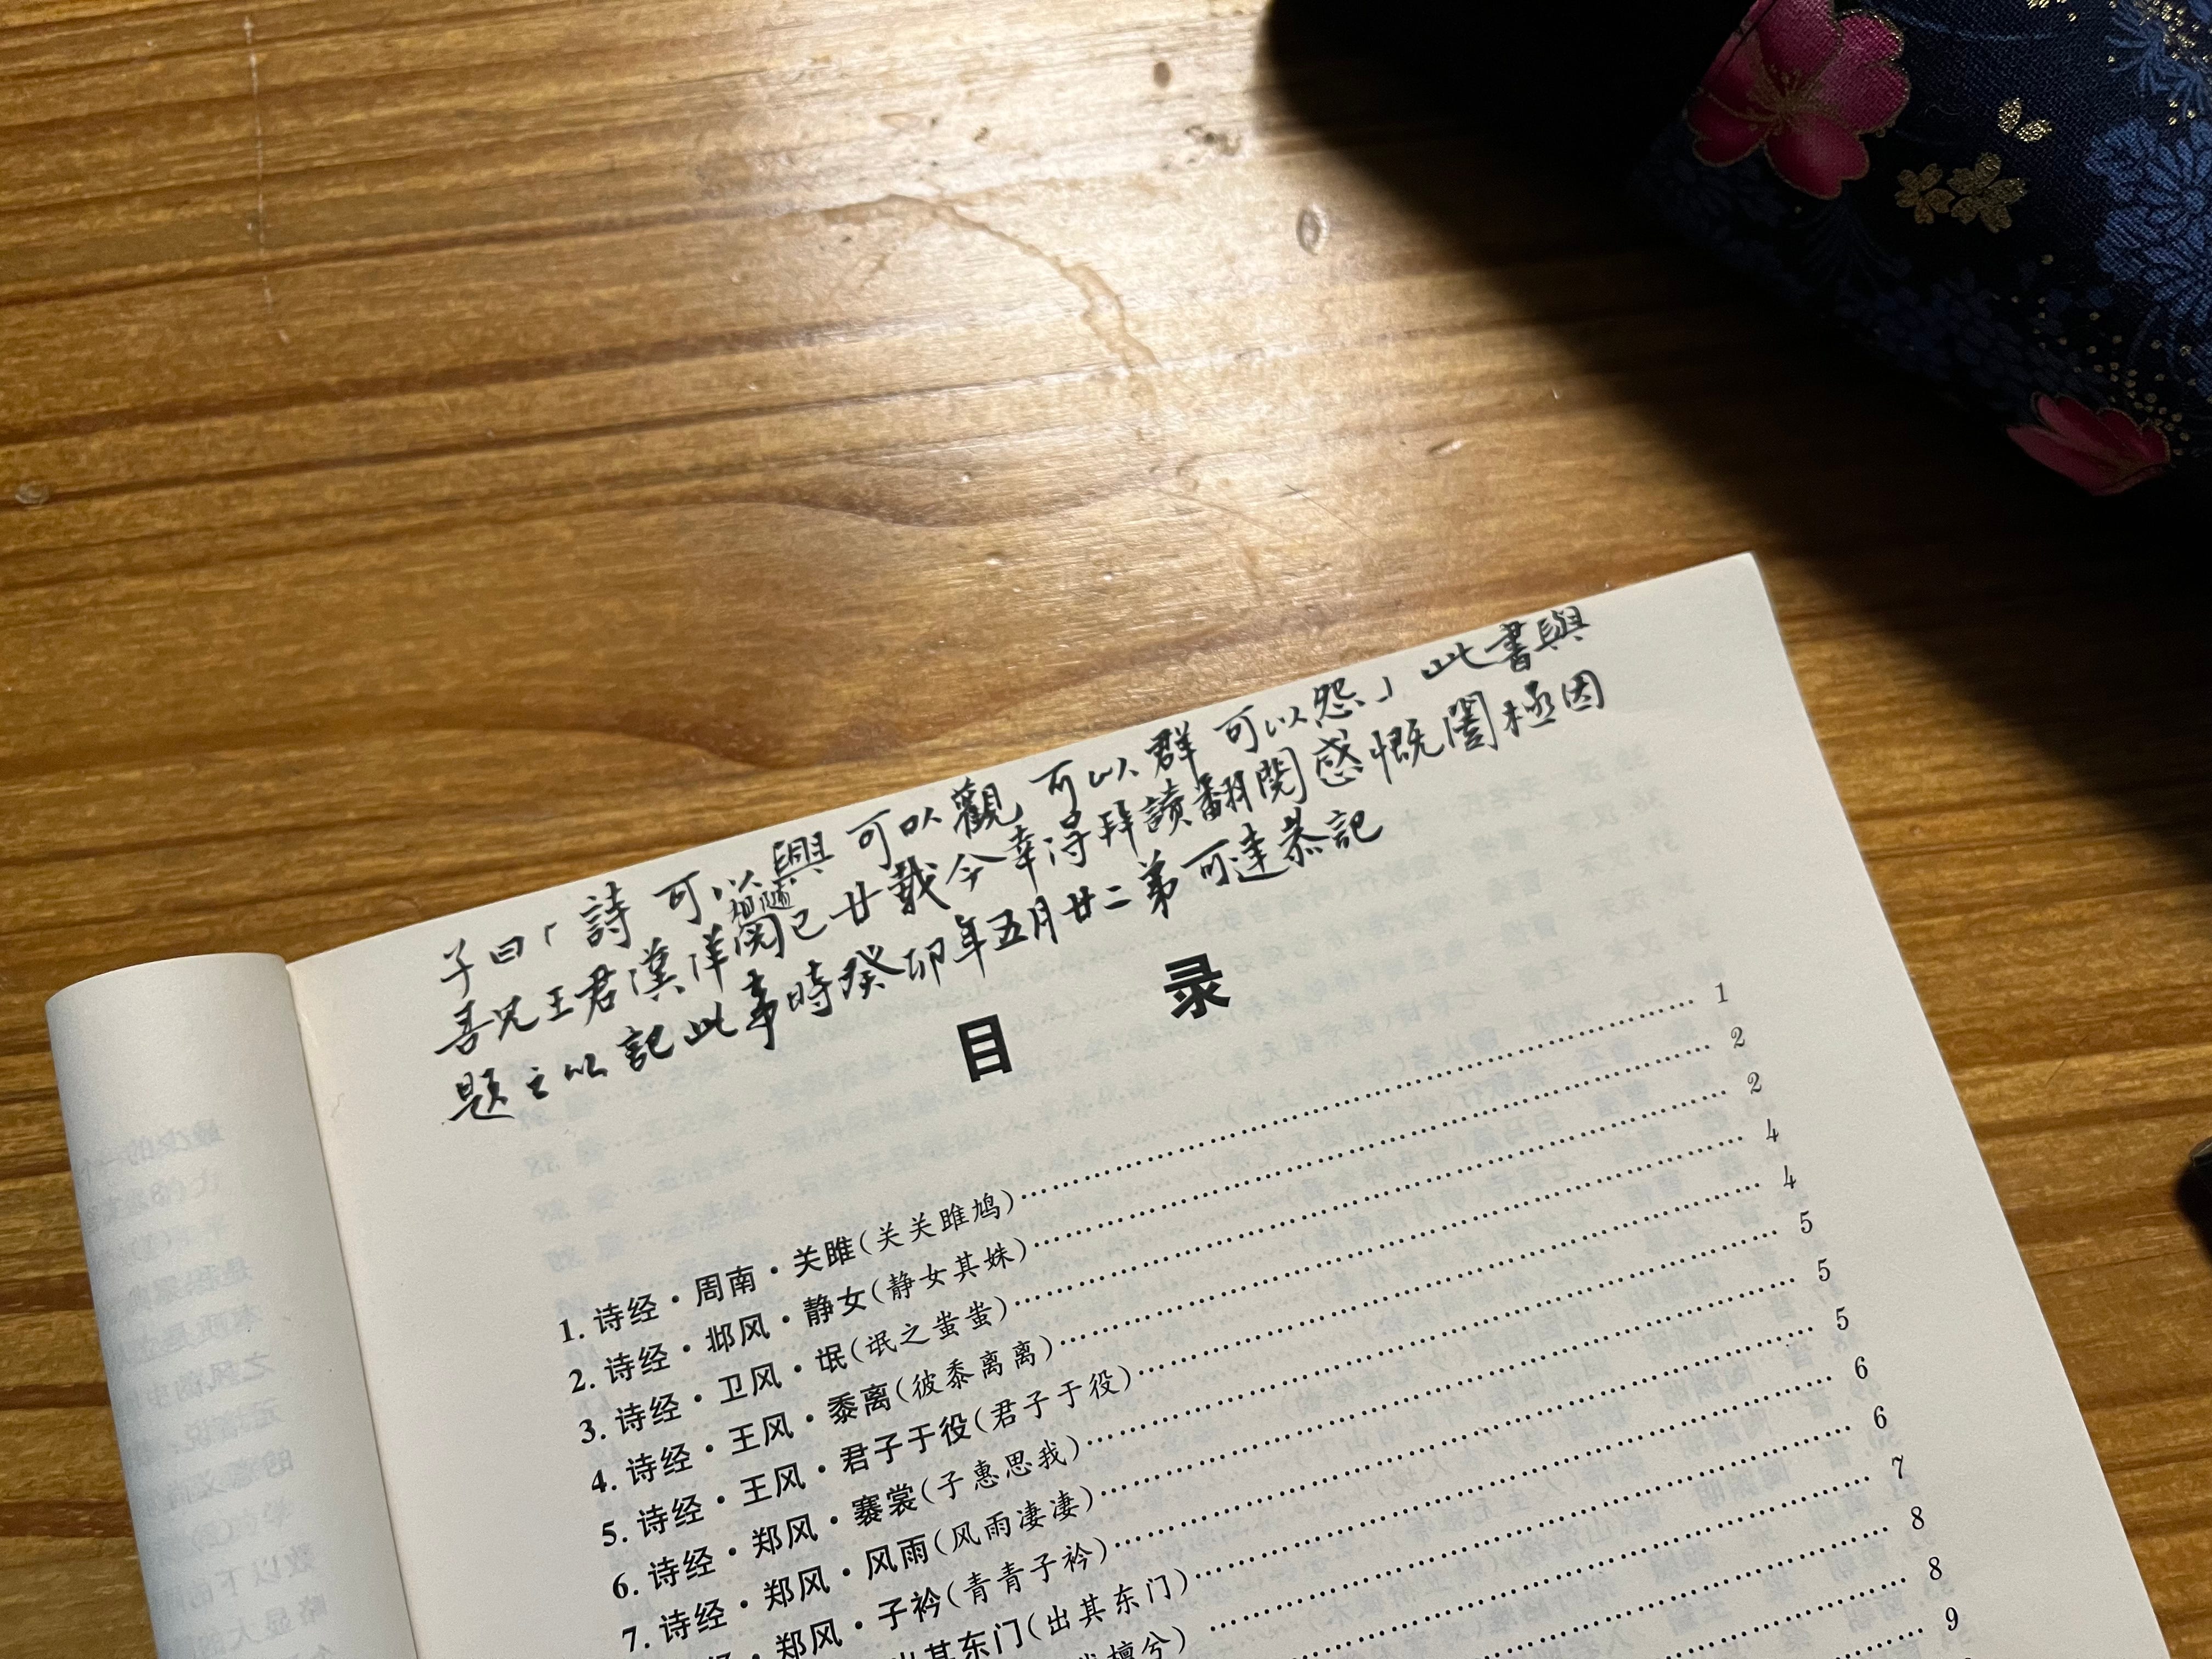 子曰「詩可以興可以觀可以群可以怨」此書與
善兄王君漢洋相隨闊已廿載今幸得拜讀翻閱感慨闇極因
題之以記此事時癸卯年五月廿二弟可達恭記
目录
1. 诗经·周南·关雎(关关雎鸠) 1
2. 诗经·邶风·静女(静女其姝) 2
3. 诗经·卫风·氓(氓之蚩蚩) 2
4. 诗经·王风·黍离(彼黍离离) 4
5. 诗经·王风·君子于役(君子于役) 4
6. 诗经·郑风·褰裳(子惠思我) 5
7. 诗经·郑风·风雨(风雨凄凄) 5
经·郑风·子衿(青青子衿) 5
出其东门(出其东门) 6
檀兮) 6
7
8
8
9